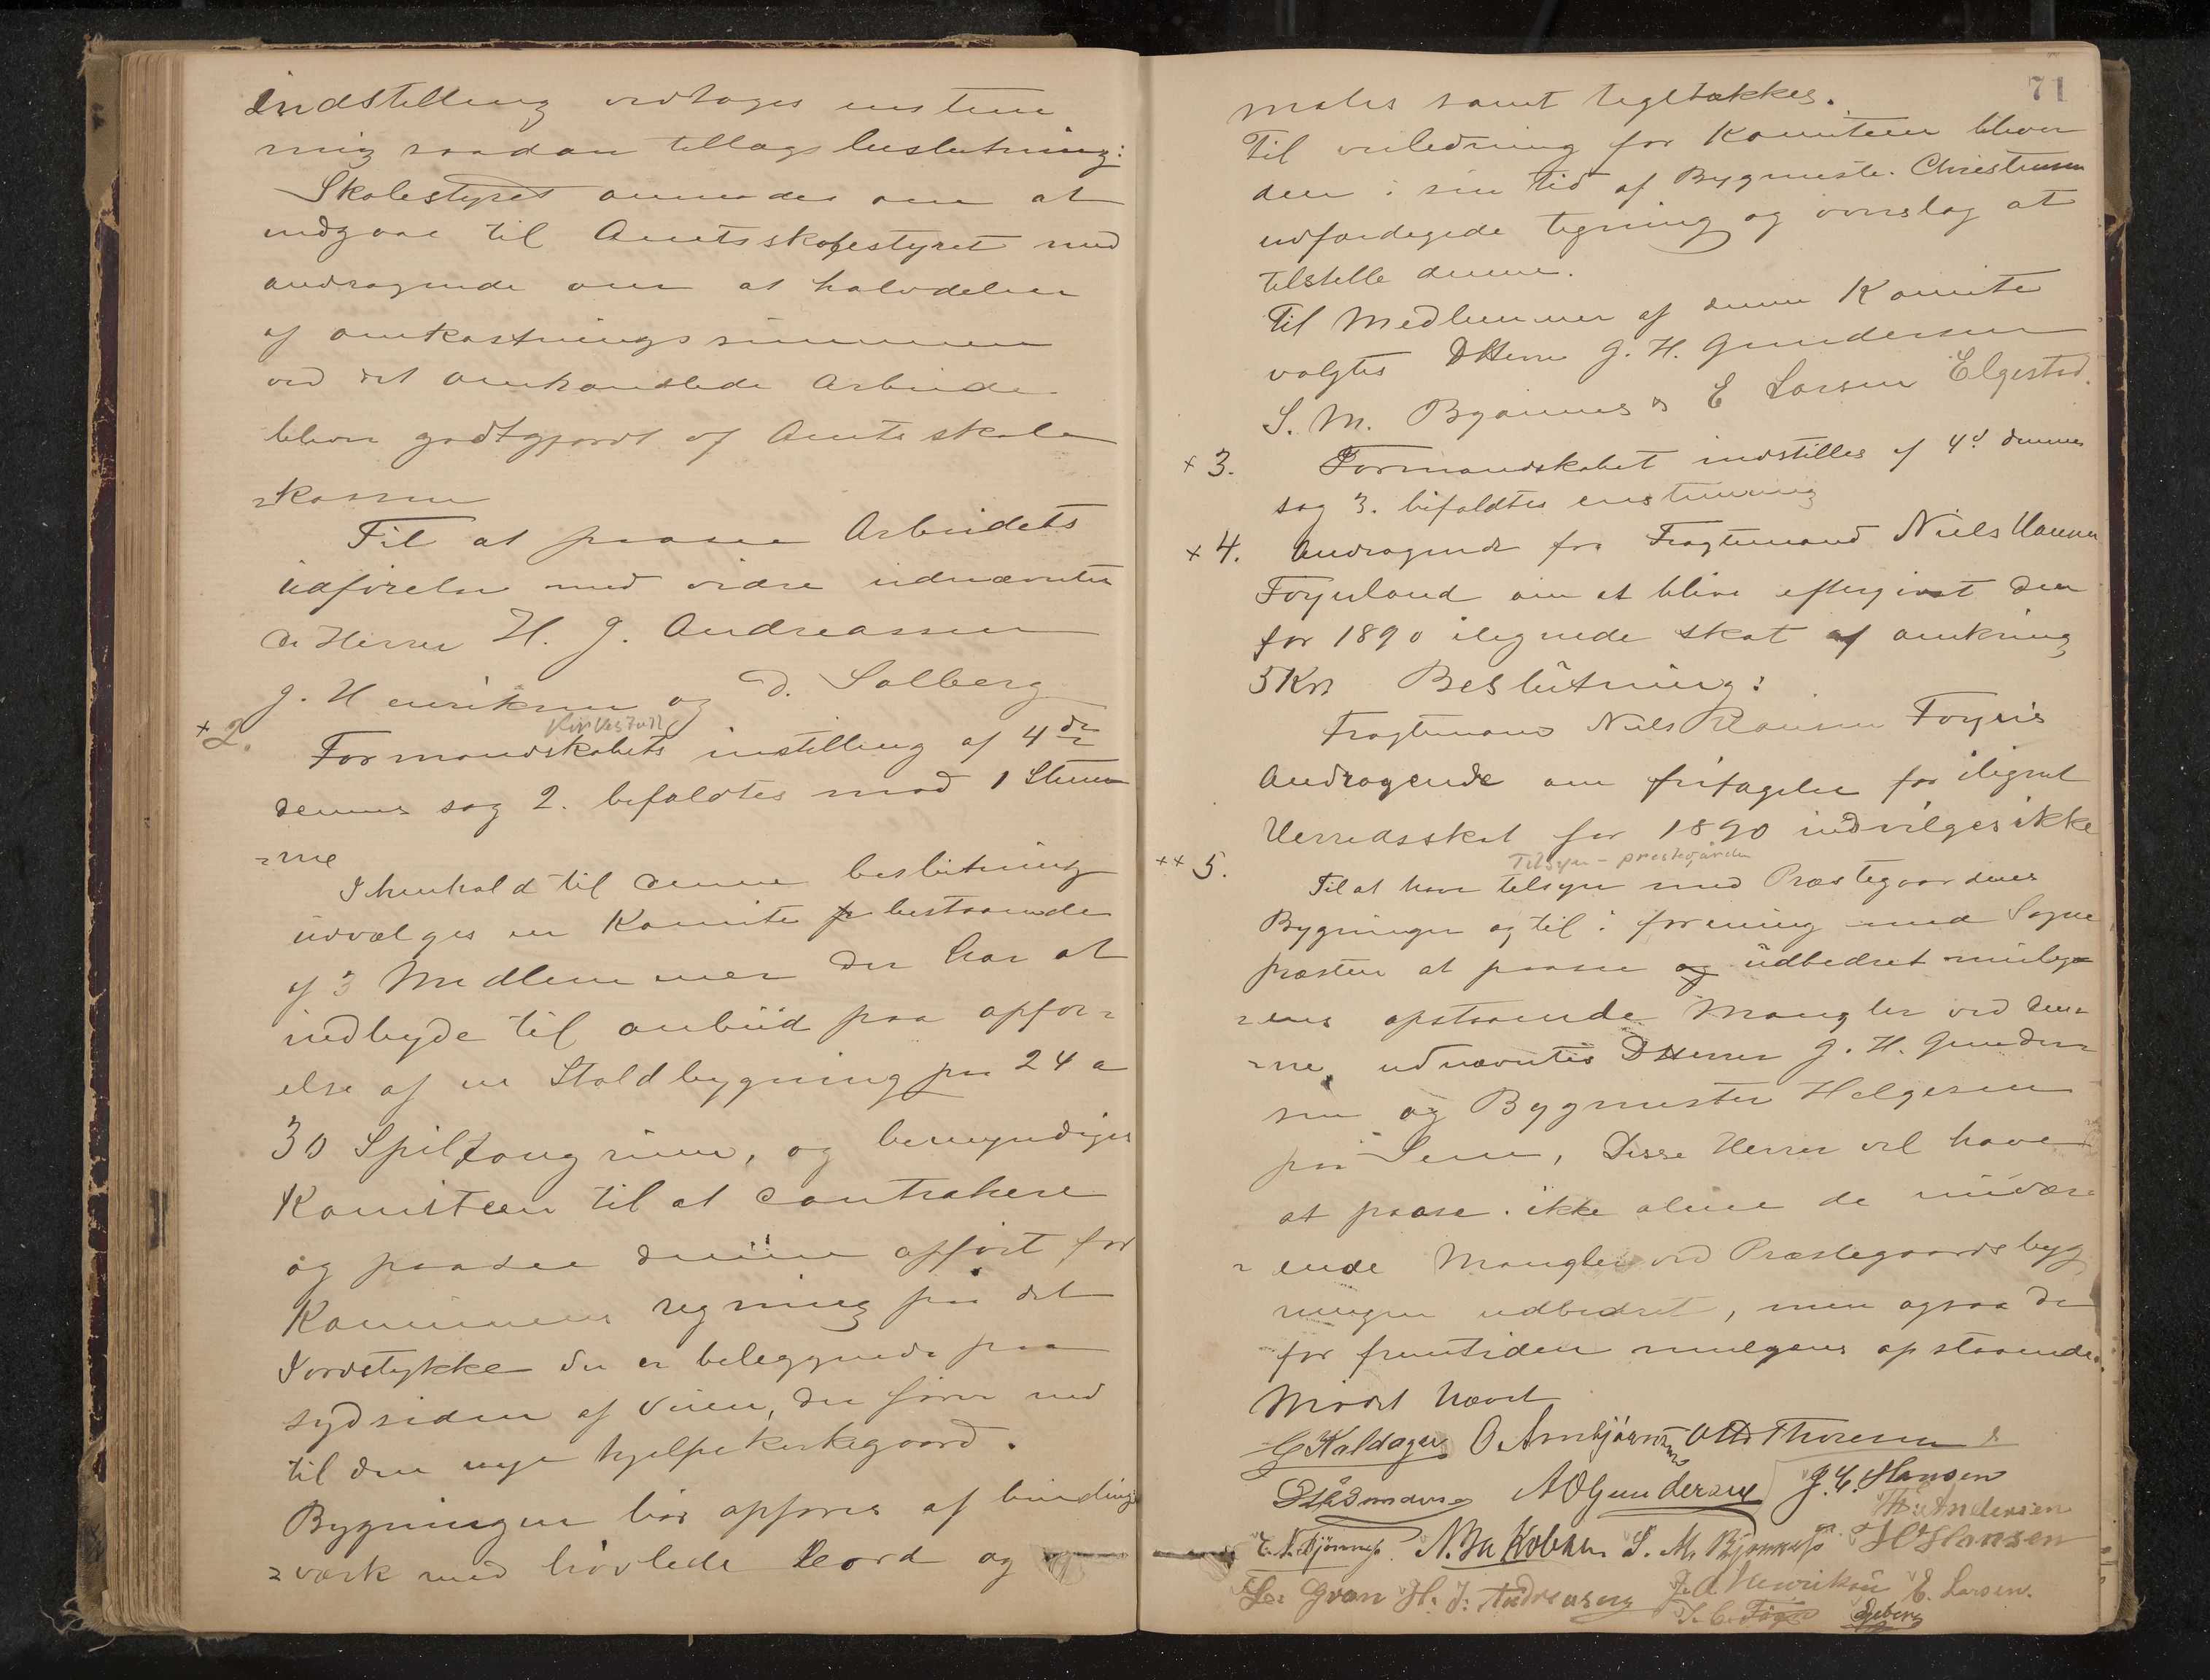 Indstilling vedtoges enstem
mig saadan tillægsbeslutning:
Skolestyret anmodes om at
indgaae til Amtsskolestyret med
andragende om at halvdelen
af omkostningssummen
ved det omhandlede Arbeide
bliver godtgjordt af Amtsskole
=kassen
Til at paasee Arbeidets
udførelse med videre udnævntes
de Herrer H. J. Andreassen
J. Henriksen og D. Solberg
Kirkestall
×2. Formandskabets instilling af 4de
dennes sag 2. befaldtes mod 1 Stem
=me
I henhold til denne beslutning
udvælges en Komite bestaaende
af 3 Medlemmer der har at
indbyde til anbud paa opfør=
else af en Staldbygning paa 24 a
30 Spiltougrum, og bemyndiges
Komiteen til at contrahere
og paasee denne opført for
Kommunens regning paa det
Jordstykke der er beleggende paa
sydsiden af veien, der fører ned
til den nye hjelpekirkegaard.
Bygningen bør opføres af bindings
=værk med høvlede Bord og
71
males samt tegltækkes.
Til veiledning for Komiteen bliver
den i sin tid af Bygmester Christensen
udfærdigede tegning og overslag at
tilstille denne.
Til Medlemmer af denne Komite
valgtes DHerrer J. H. Gundersen
S. M. Bjønnes & E Larsen Elgested.
×3. Formandskabet indstilles af 4d dennes
sag 3. bifaldtes enstemmig
×4. Andragende fra Fragtemand Niels Hansen
Foynland om at blive eftergivet den
for 1890 ilignede skat af omkring
5Kr Beslutning:
Fragtemand Niels Hansen Foynes
Andragende om fritagelse for ilignet
Herredsskat for 1890 indvilges ikke
Tilsyn - prestegården
×× 5. Til at have tilsyn med Præstegaardens
Bygninger og til i forening med Sogne
præsten at paasee og udbedret mulige
=ens opstaaende Mangler ved den=
=ne, udnævntes DHerrer J. H. Gunder=
sen og Bygmester Helgesen
paa Sem, Disse Herrer vil have
at paase ikke alene de nuvære
=ende Mangler ved Præstegaardsbyg
ningen udbedret, men ogsaa de
for fremtiden muligens opstaaende.
Mødet hævet
G Kaldager O. Arnbjørnsen Otto Thoresen
A O Gundersen J. C. Hansen
Th. Andersen
E. N. Bjønnes. N. Jakobsen S. M. Bjønnes H Hansen
Gran H. J. Andreasen J. A. Henriksen E. Larsen.
J. C. Føyn